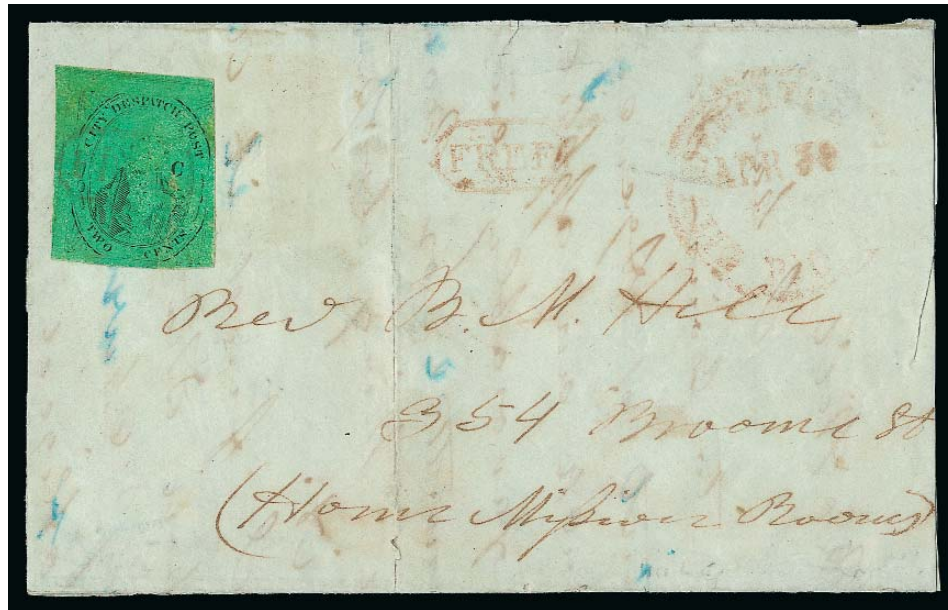 CITY DESPATCH POST
C
TWO CENTS
FREE
APR 30
Rev B. M. Hill
354 Broome St
(Home Mißion Rooms)